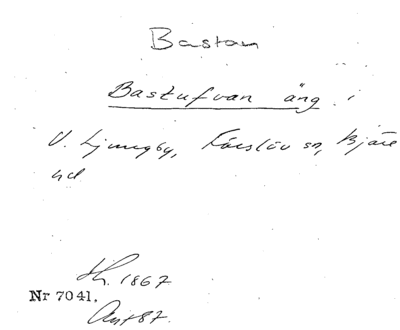 Bastan
Bastufvan äng.
V. Ljungby, Förslöv sn, Bjäre
hd
Sk. 1867
Nr 7041.
Avs 87.